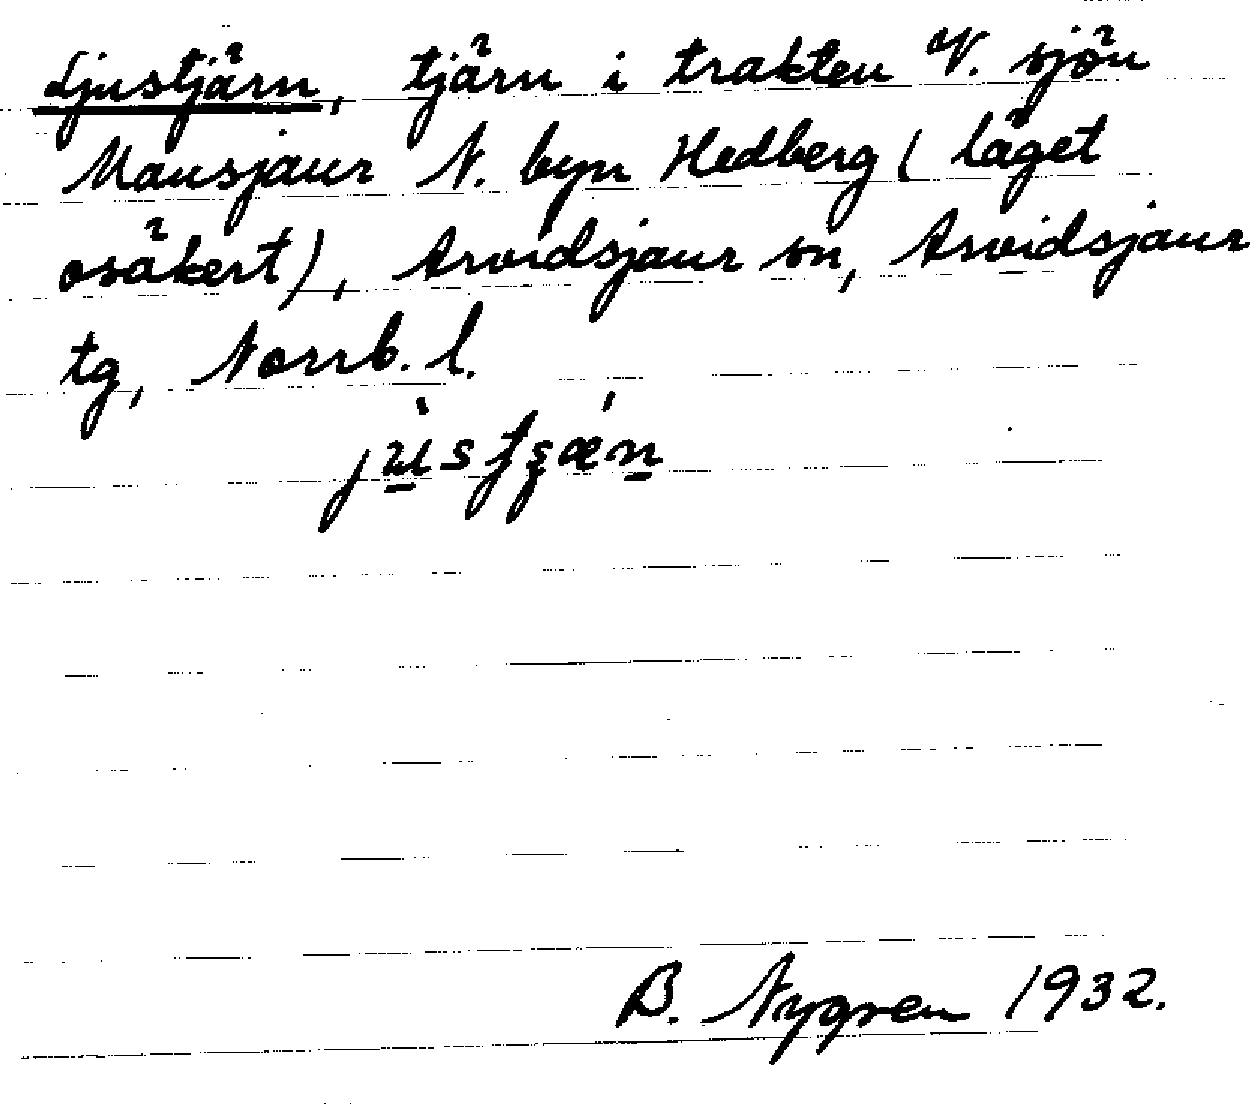 Ljustjärn, tjärn i trakten V. sjön
Mausjaur N. byn Hedberg (läget
osäkert), Arvidsjaur sn, Arvidsjaur
tg, Norrb. l.
B. Nygren 1932.